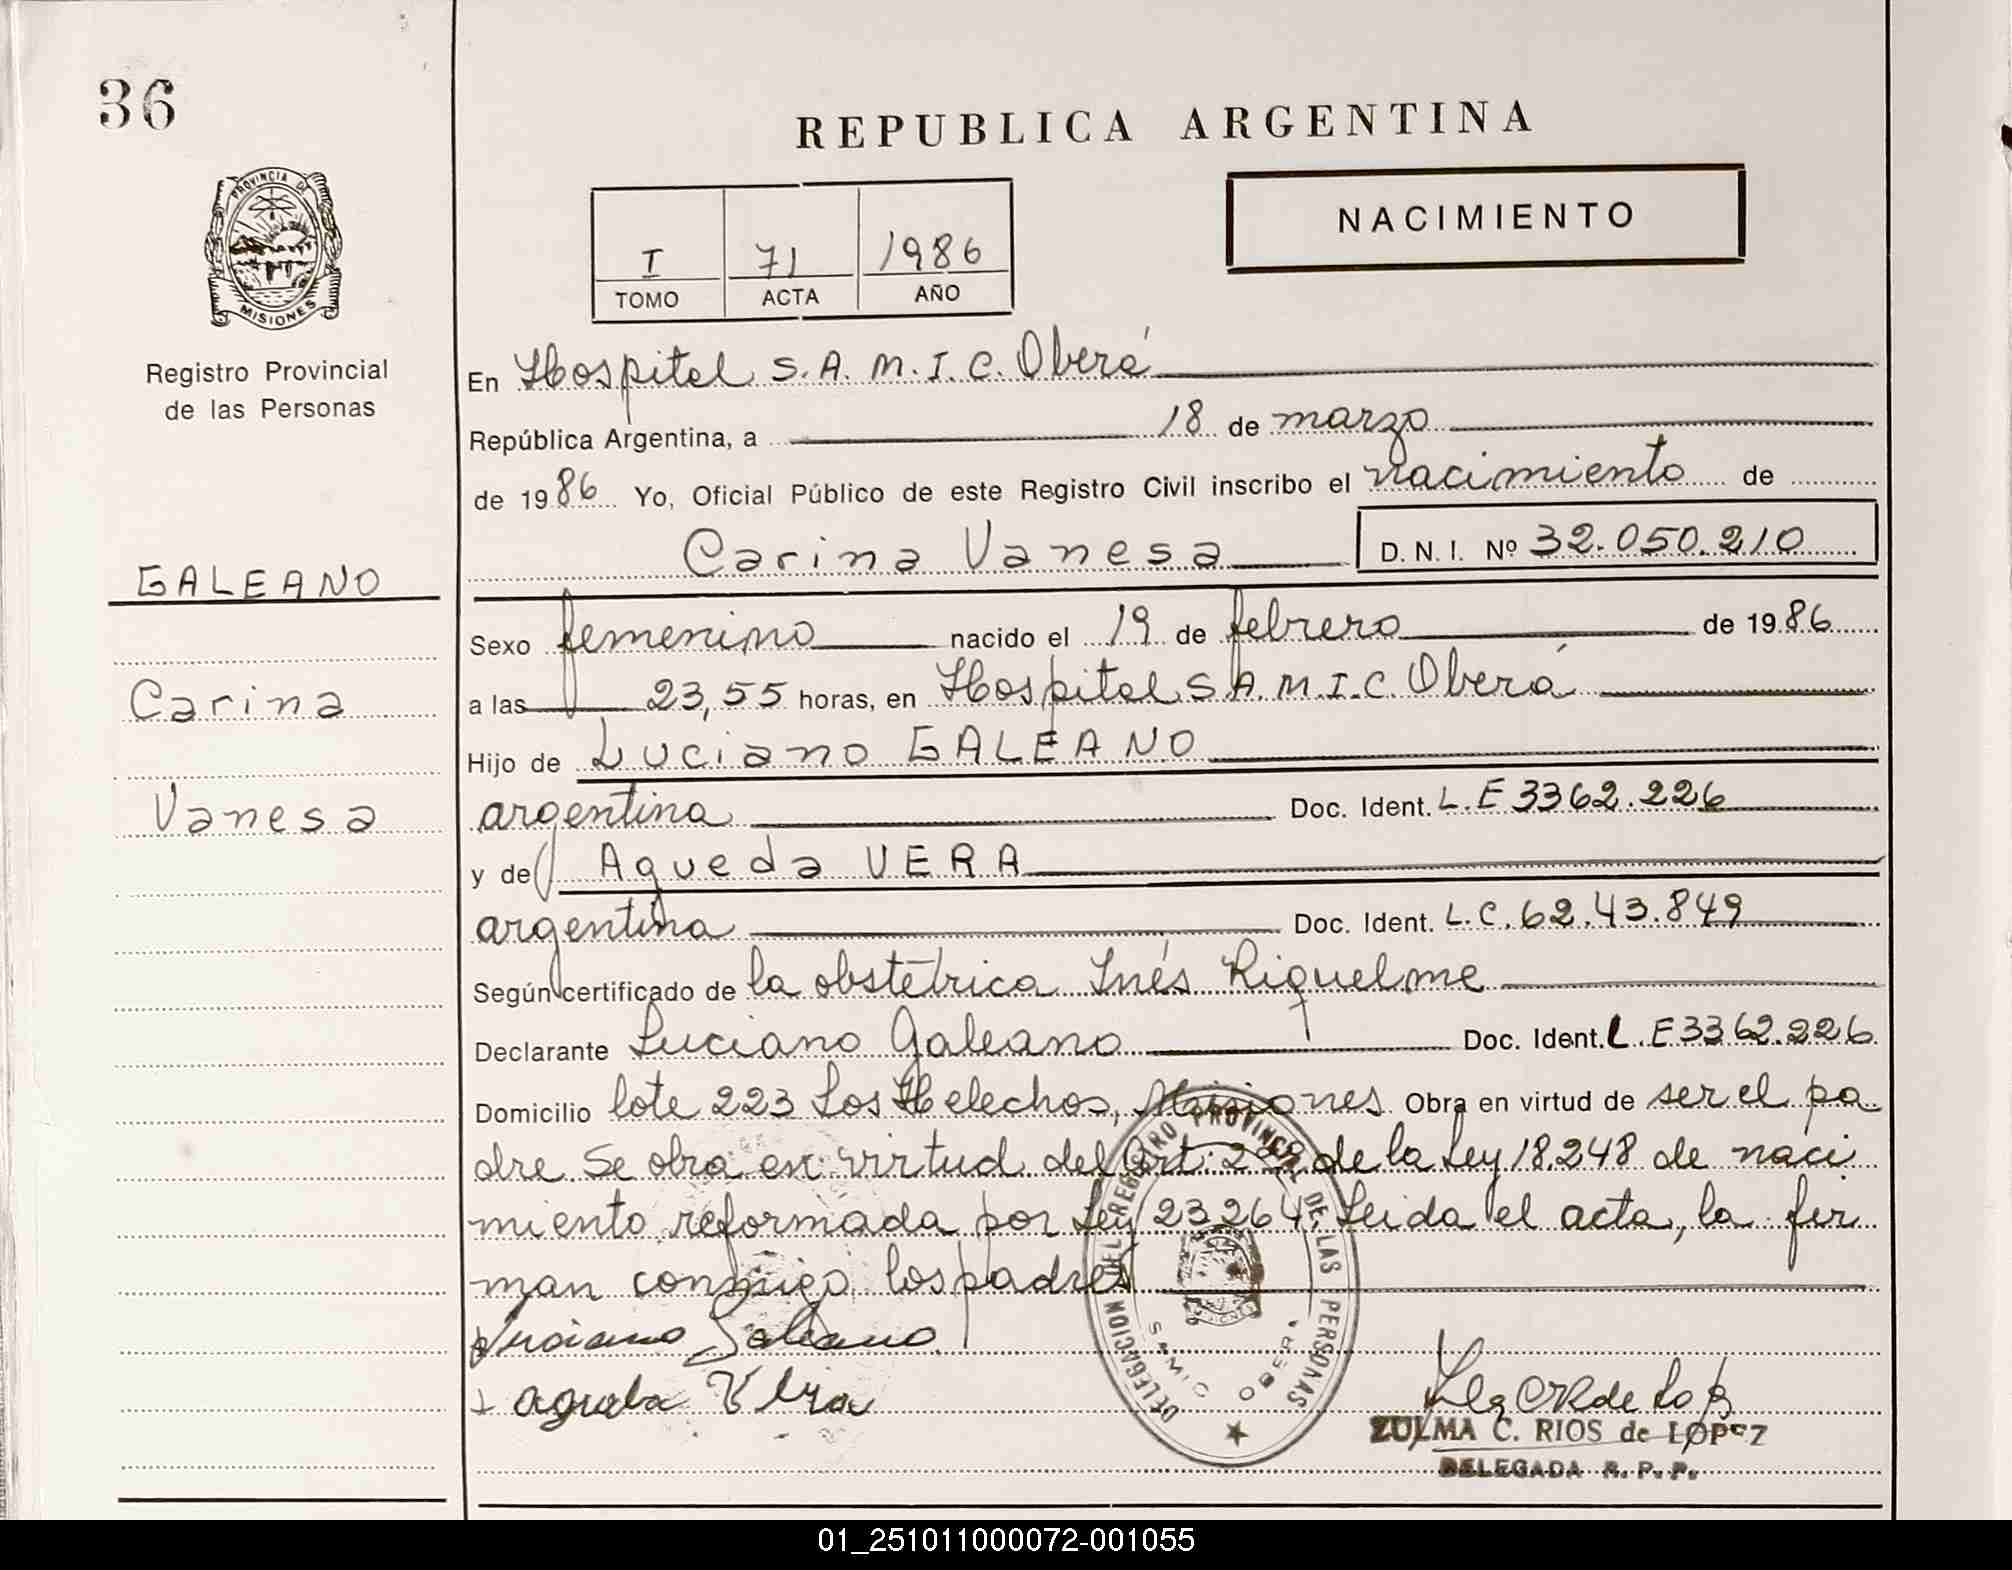 36
REPUBLICA ARGENTINA
PROVINCIA DE
MISIONES
NACIMIENTO
I 71 1986
TOMO ACTA AÑO
Registro Provincial
de las Personas
En Hospital S.A.M.I.C. Oberá
República Argentina, a 18 de marzo
de 1986 Yo, Oficial Público de este Registro Civil inscribo el nacimiento de
Carina Vanesa D.N.I. Nº 32.050.210
GALEANO
Sexo femenino nacido el 19 de febrero de 1986
Carina
a las 23,55 horas, en Hospital S.A.M.I.C. Oberá
Hijo de Luciano GALEANO
Vanesa
argentina Doc. Ident. L.E 3362.226
y de Agueda VERA
argentina Doc. Ident. L.C. 62.43.849
Según certificado de la obstétrica Inés Riquelme
Declarante Luciano Galeano Doc. Ident. L.E 3362.226
Domicilio lote 223 Los Helechos, Misiones Obra en virtud de ser el pa
dre Se obra en virtud del Art. de la Ley 18.248 de naci
miento reformada por Ley 23264. Leida el acta, la fir
man conmigo los padres
Luciano Galeano
Vera
DELEGACION DEL REGISTRO PROVINCIAL DE LAS PERSONAS
SAMIC OBERA
ZULMA C. RIOS de LOPEZ
DELEGADA R. P. P.
01_251011000072-001055